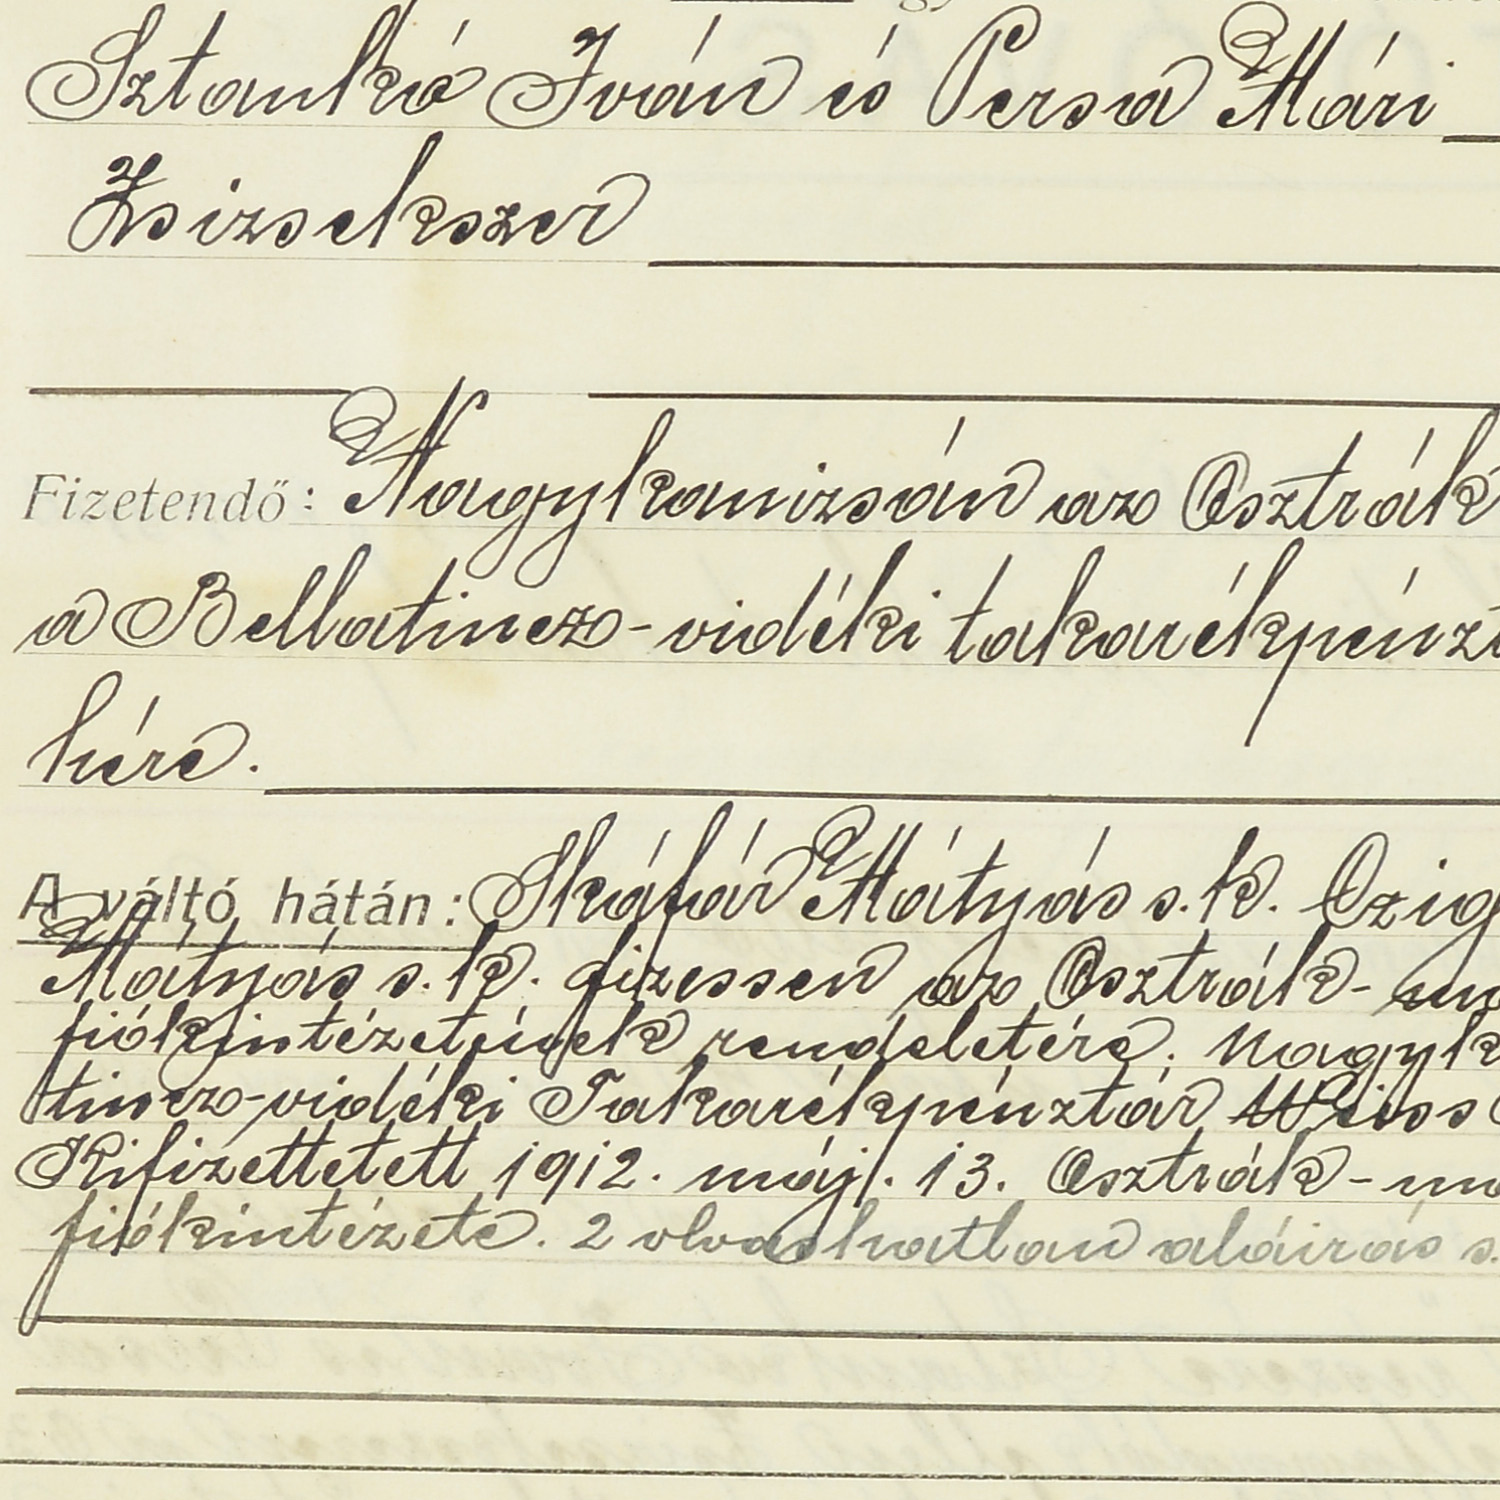 Sztankó Iván és Persa Mári
Zsizsekszer
Fizetendő: Nagykanizsán az Osztrák
a Bellatincz-vidéki takarékpénzt
hére.
A váltó hátán: Skáfár Mátyás s. k. Czig
Mátyás s. k. fizessen az Osztrák-
fiókintézetének rendeletére. Nagyk
tincz-vidéki Takarékpénztár Weiss
Kifizettetett 1912. máj. 13. Osztrák-
fiókintézete. 2 olvashatlan aláirás s.